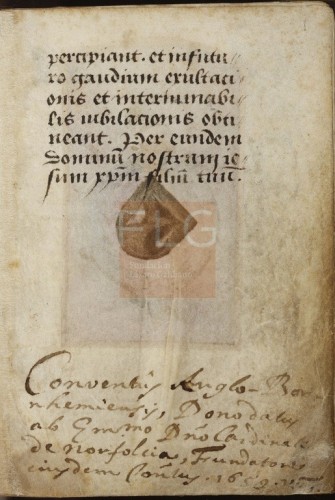 percipiant. et in futu/
ro gaudium exultaci/
onis et interminabi/
lis iubilacionis obti
neant. Per eundem
dominū nostram ie/
sum xpm̄ filiū tuū.
FLG
Conventus Anglo-Bor-
nhemiensis, Dono datus
ab Emmo Dno Cardinale
de norfolcia, Fundatore
eiusdem Conūtus. 1659.